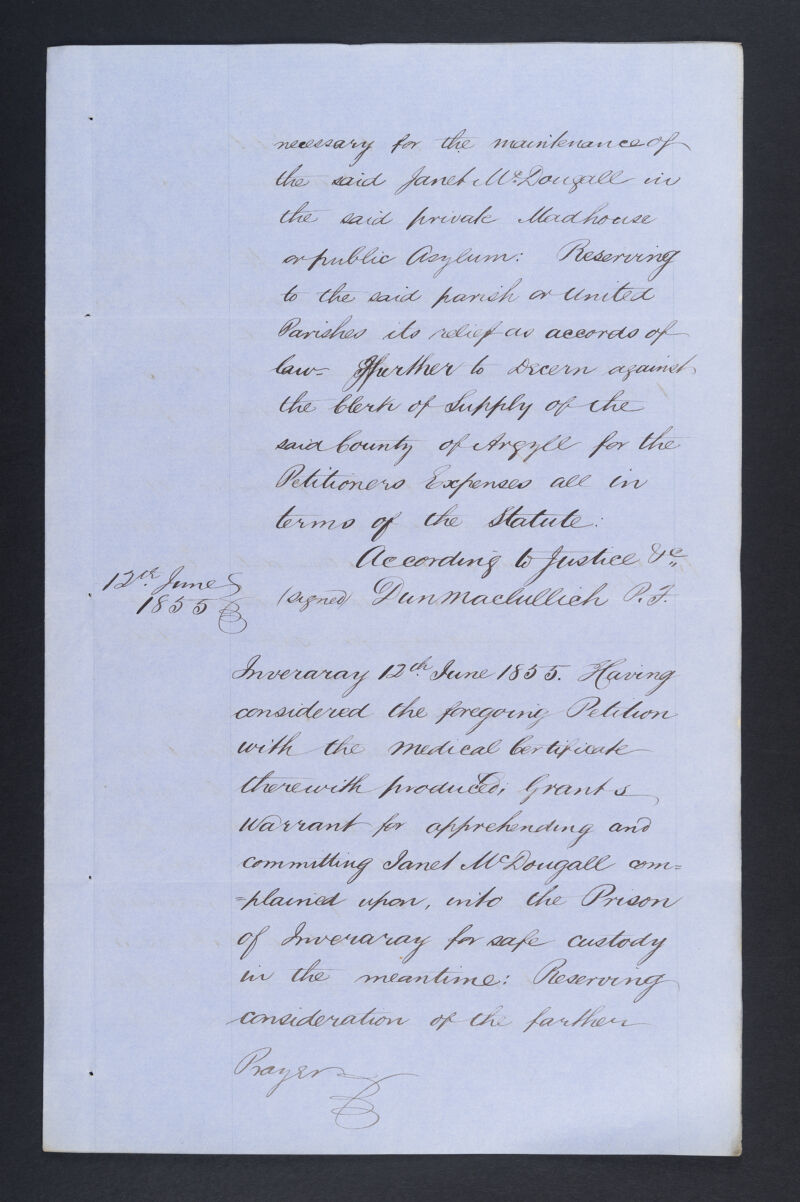 necessary for the maintenance of
the said Janet McDougall in
the said private Madhouse
or public Asylum: Reserving
to the said parish or United
Parishes its relief as accords of
law - Ffurther to Decern against
the Clerk of Supply of the
said County of Argyll for the
Petitioners Expenses all in
terms of the Statute:
According to Justice &c
12th June
1855
(signed) Dun MacLullich P. F.
Inveraray 12th June 1855. Having
considered the foregoing Petition
with the Medical Certificate
therewith produced; Grants
Warrant for apprehending and
committing Janet McDougall com=
=plained upon, into the Prison
of Inveraray for safe custody
in the meantime: Reserving
consideration of the farther
Prayer